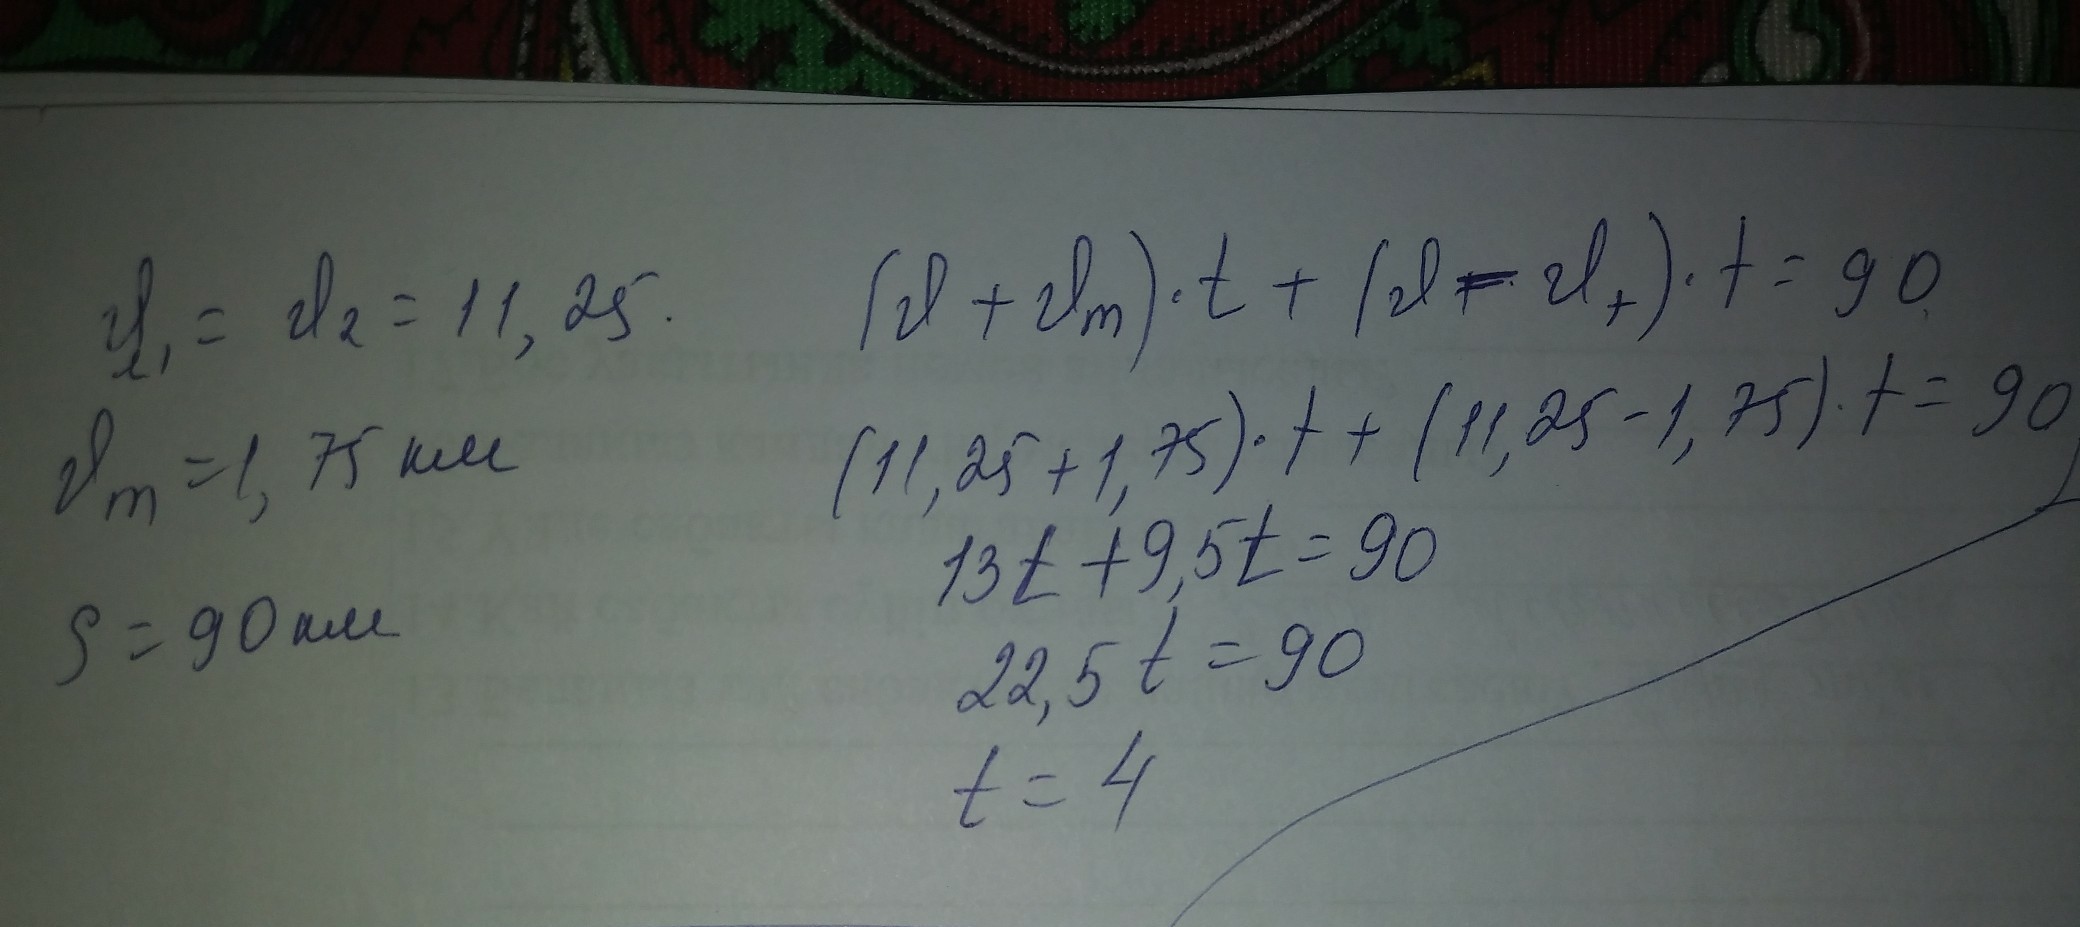 𝒱л₁ = 𝒱₂ = 11,25.
𝒱m = 1,75 км
S = 90 км
(𝒱 + 𝒱m)·t + (𝒱 - 𝒱т)·t = 90
(11,25+1,75)·t + (11,25-1,75)·t = 90
13t + 9,5t = 90
22,5t = 90
t = 4